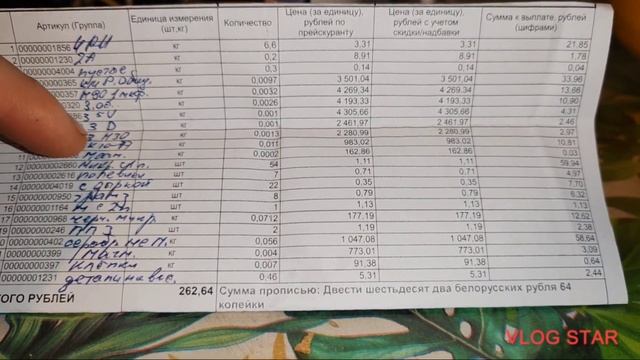 Артикул (Группа) Единица измерения (шт,кг) Количество Цена (за единицу), рублей по прейскуранту Цена (за единицу), рублей с учетом скидки/надбавки Сумма к выплате, рублей (цифрами)
1 00000001856 кг 6,6 3,31 3,31 21,85
2 00000001230 2А кг 0,2 8,91 8,91 1,78
00000004004 пустое кг 0,3 0,14 0,14 0,04
00000365 кг 0,0097 3 501,04 3 501,04 33,96
00000357 кг 0,0032 4 269,34 4 269,34 13,66
00000320 кг 0,0026 4 193,33 4 193,33 10,90
кг 0,001 4 305,66 4 305,66 4,31
кг 0,001 2 461,97 2 461,97 2,46
кг 0,0013 2 280,99 2 280,99 2,97
кг 0,011 983,02 983,02 10,81
11 кг 0,0002 162,86 162,86 0,03
12 00000002660 шт 54 1,11 1,11 59,94
13 00000002616 шт 7 0,71 0,71 4,97
14 00000004019 с дыркой шт 22 0,35 0,35 7,70
15 00000000950 шт 8 0,79 0,79 6,32
16 00000001164 шт 1 1,13 1,13 1,13
17 00000000968 кг 0,0712 177,19 177,19 12,62
00000000246 шт 2 1,19 1,19 2,38
00000000402 кг 0,056 1 047,08 1 047,08 58,64
00000000399 кг 0,004 773,01 773,01 3,09
00000000397 клепки кг 0,007 91,38 91,38 0,64
00000001231 кг 0,46 5,31 5,31 2,44
ТОГО РУБЛЕЙ 262,64 Сумма прописью: Двести шестьдесят два белорусских рубля 64 копейки
VLOG STAR